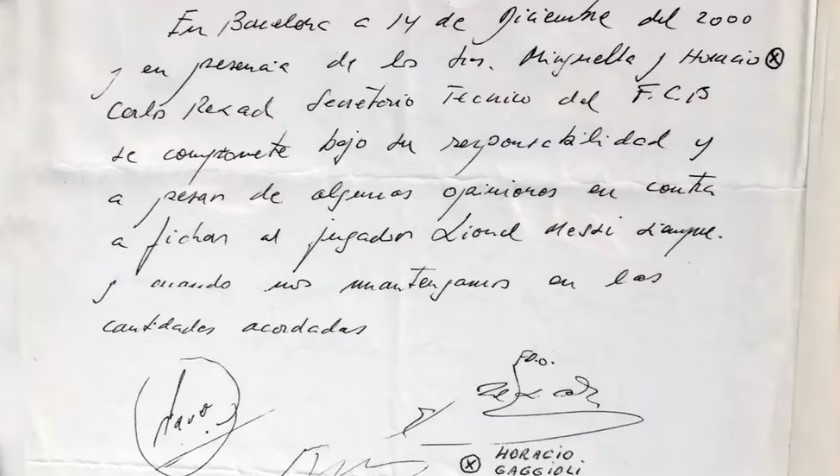 En Barcelona a 14 de Diciembre del 2000
y en presencia de los Srs. Minguella y Horacio ⓧ
Carlos Rexach Secretario Tecnico del F.C.B
se compromete bajo su responsabilidad y
a pesar de algunas opiniones en contra
a fichar al jugador Lionel Messi siempre
y cuando nos mantengamos en las
cantidades acordadas
FDO.
ⓧ HORACIO
GAGGIOLI